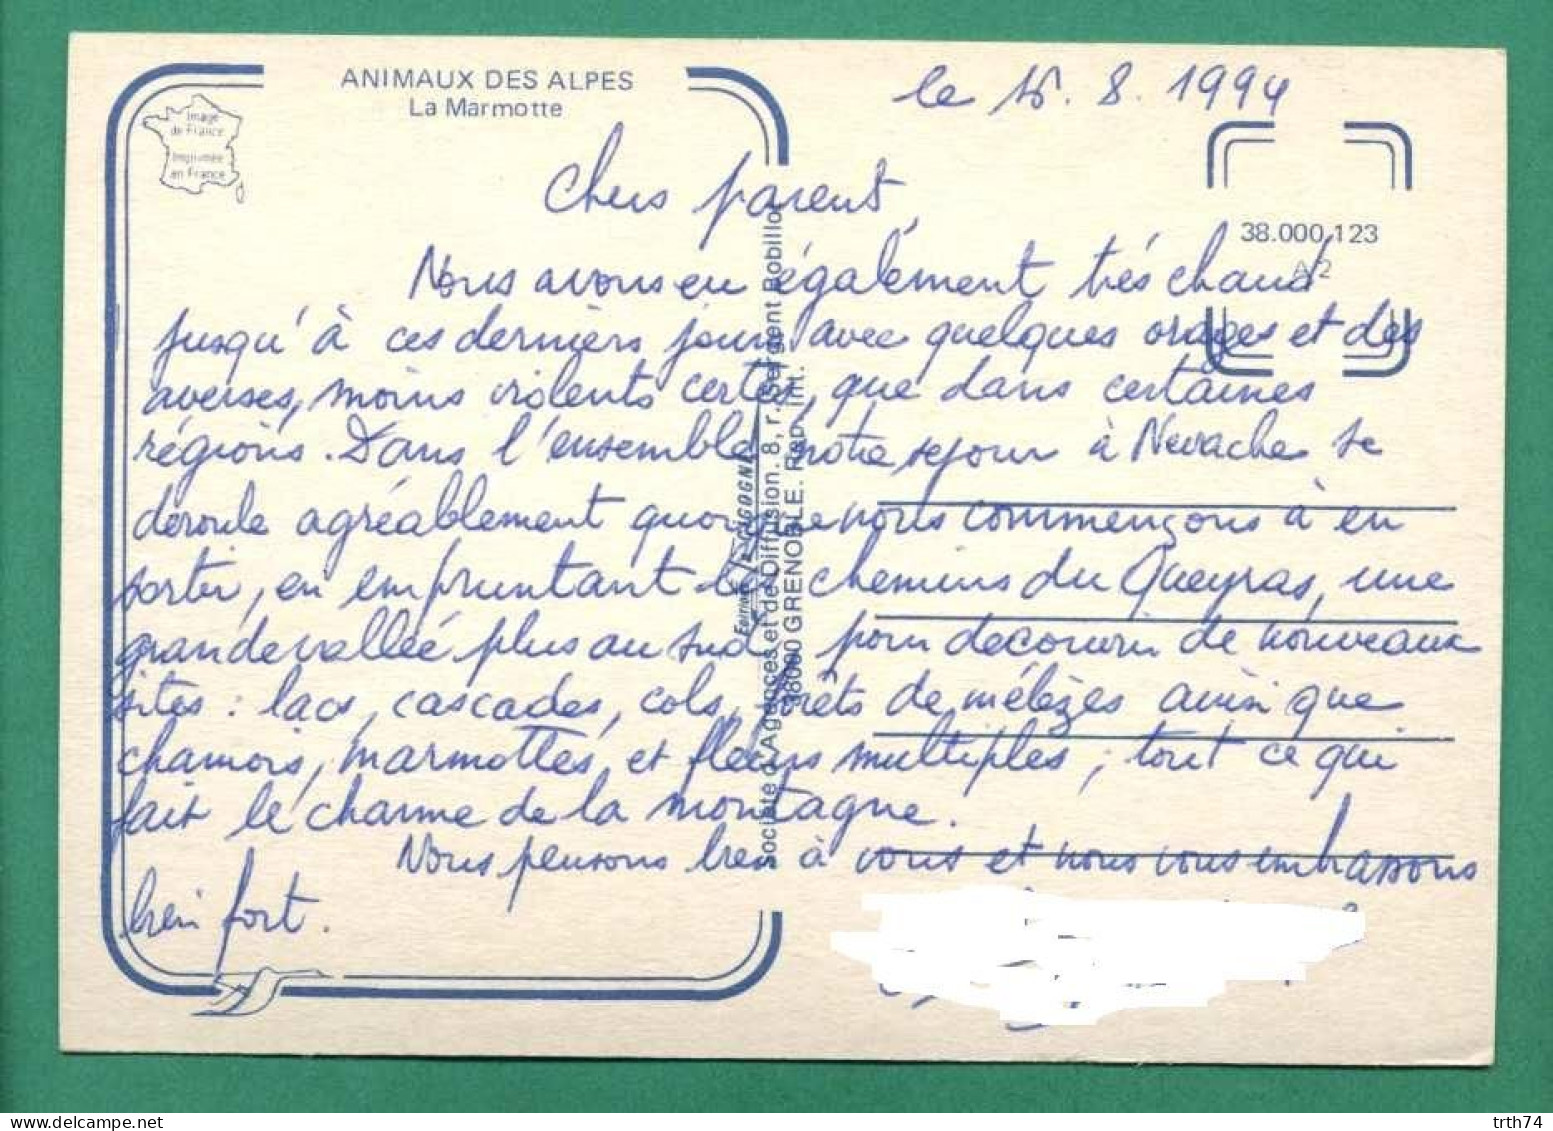 ANIMAUX DES ALPES
La Marmotte
Image
de France
Imprimée
en France
le 15.8.1994
38.000.123
A/2
Chers parents,
Nous avons eu également très chaud
jusqu'à ces derniers jours avec quelques orages et des
averses, moins violents certes, que dans certaines
régions. Dans l'ensemble notre sejour à Nevache se
deroule agréablement quoique nous commençons à en
sortir, en empruntant les chemins du Queyras, une
grande vallée plus au sud pour decouvrir de nouveaux
sites : lacs, cascades, cols, forêts de mélèzes ainsi que
chamois, marmottes, et fleurs multiples ; tout ce qui
fait le charme de la montagne.
Nous pensons bien à vous et nous vous embrassons
bien fort.
Editions LA CIGOGNE
Société d'Agences et de Diffusion. 8, r. Sergent Bobillot
38000 GRENOBLE. Rep. int.
trth74